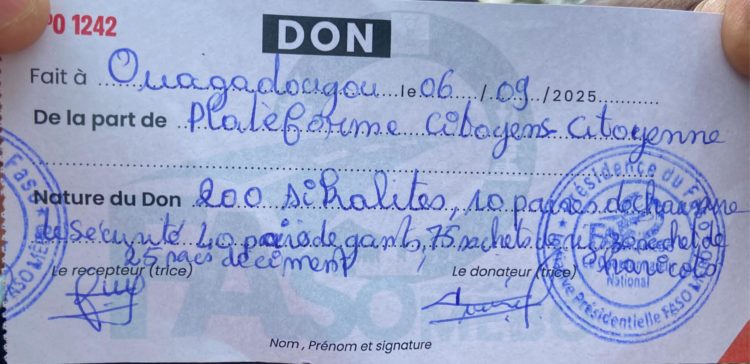 PO 1242
DON
Fait à Ouagadougou le 06/09/2025
De la part de Plateforme Citoyens Citoyenne
Nature du Don 200 sikalites, 10 paires de chaussure
de sécurité 40 paires de gants, 75 sachets de riz 50 sachet de
25 sacs de ciment haricots
Le recepteur (trice) Le donateur (trice)
National
Nom, Prénom et signature
Présidence du Faso
Présidentielle FASO MEBO
FASO MEBO